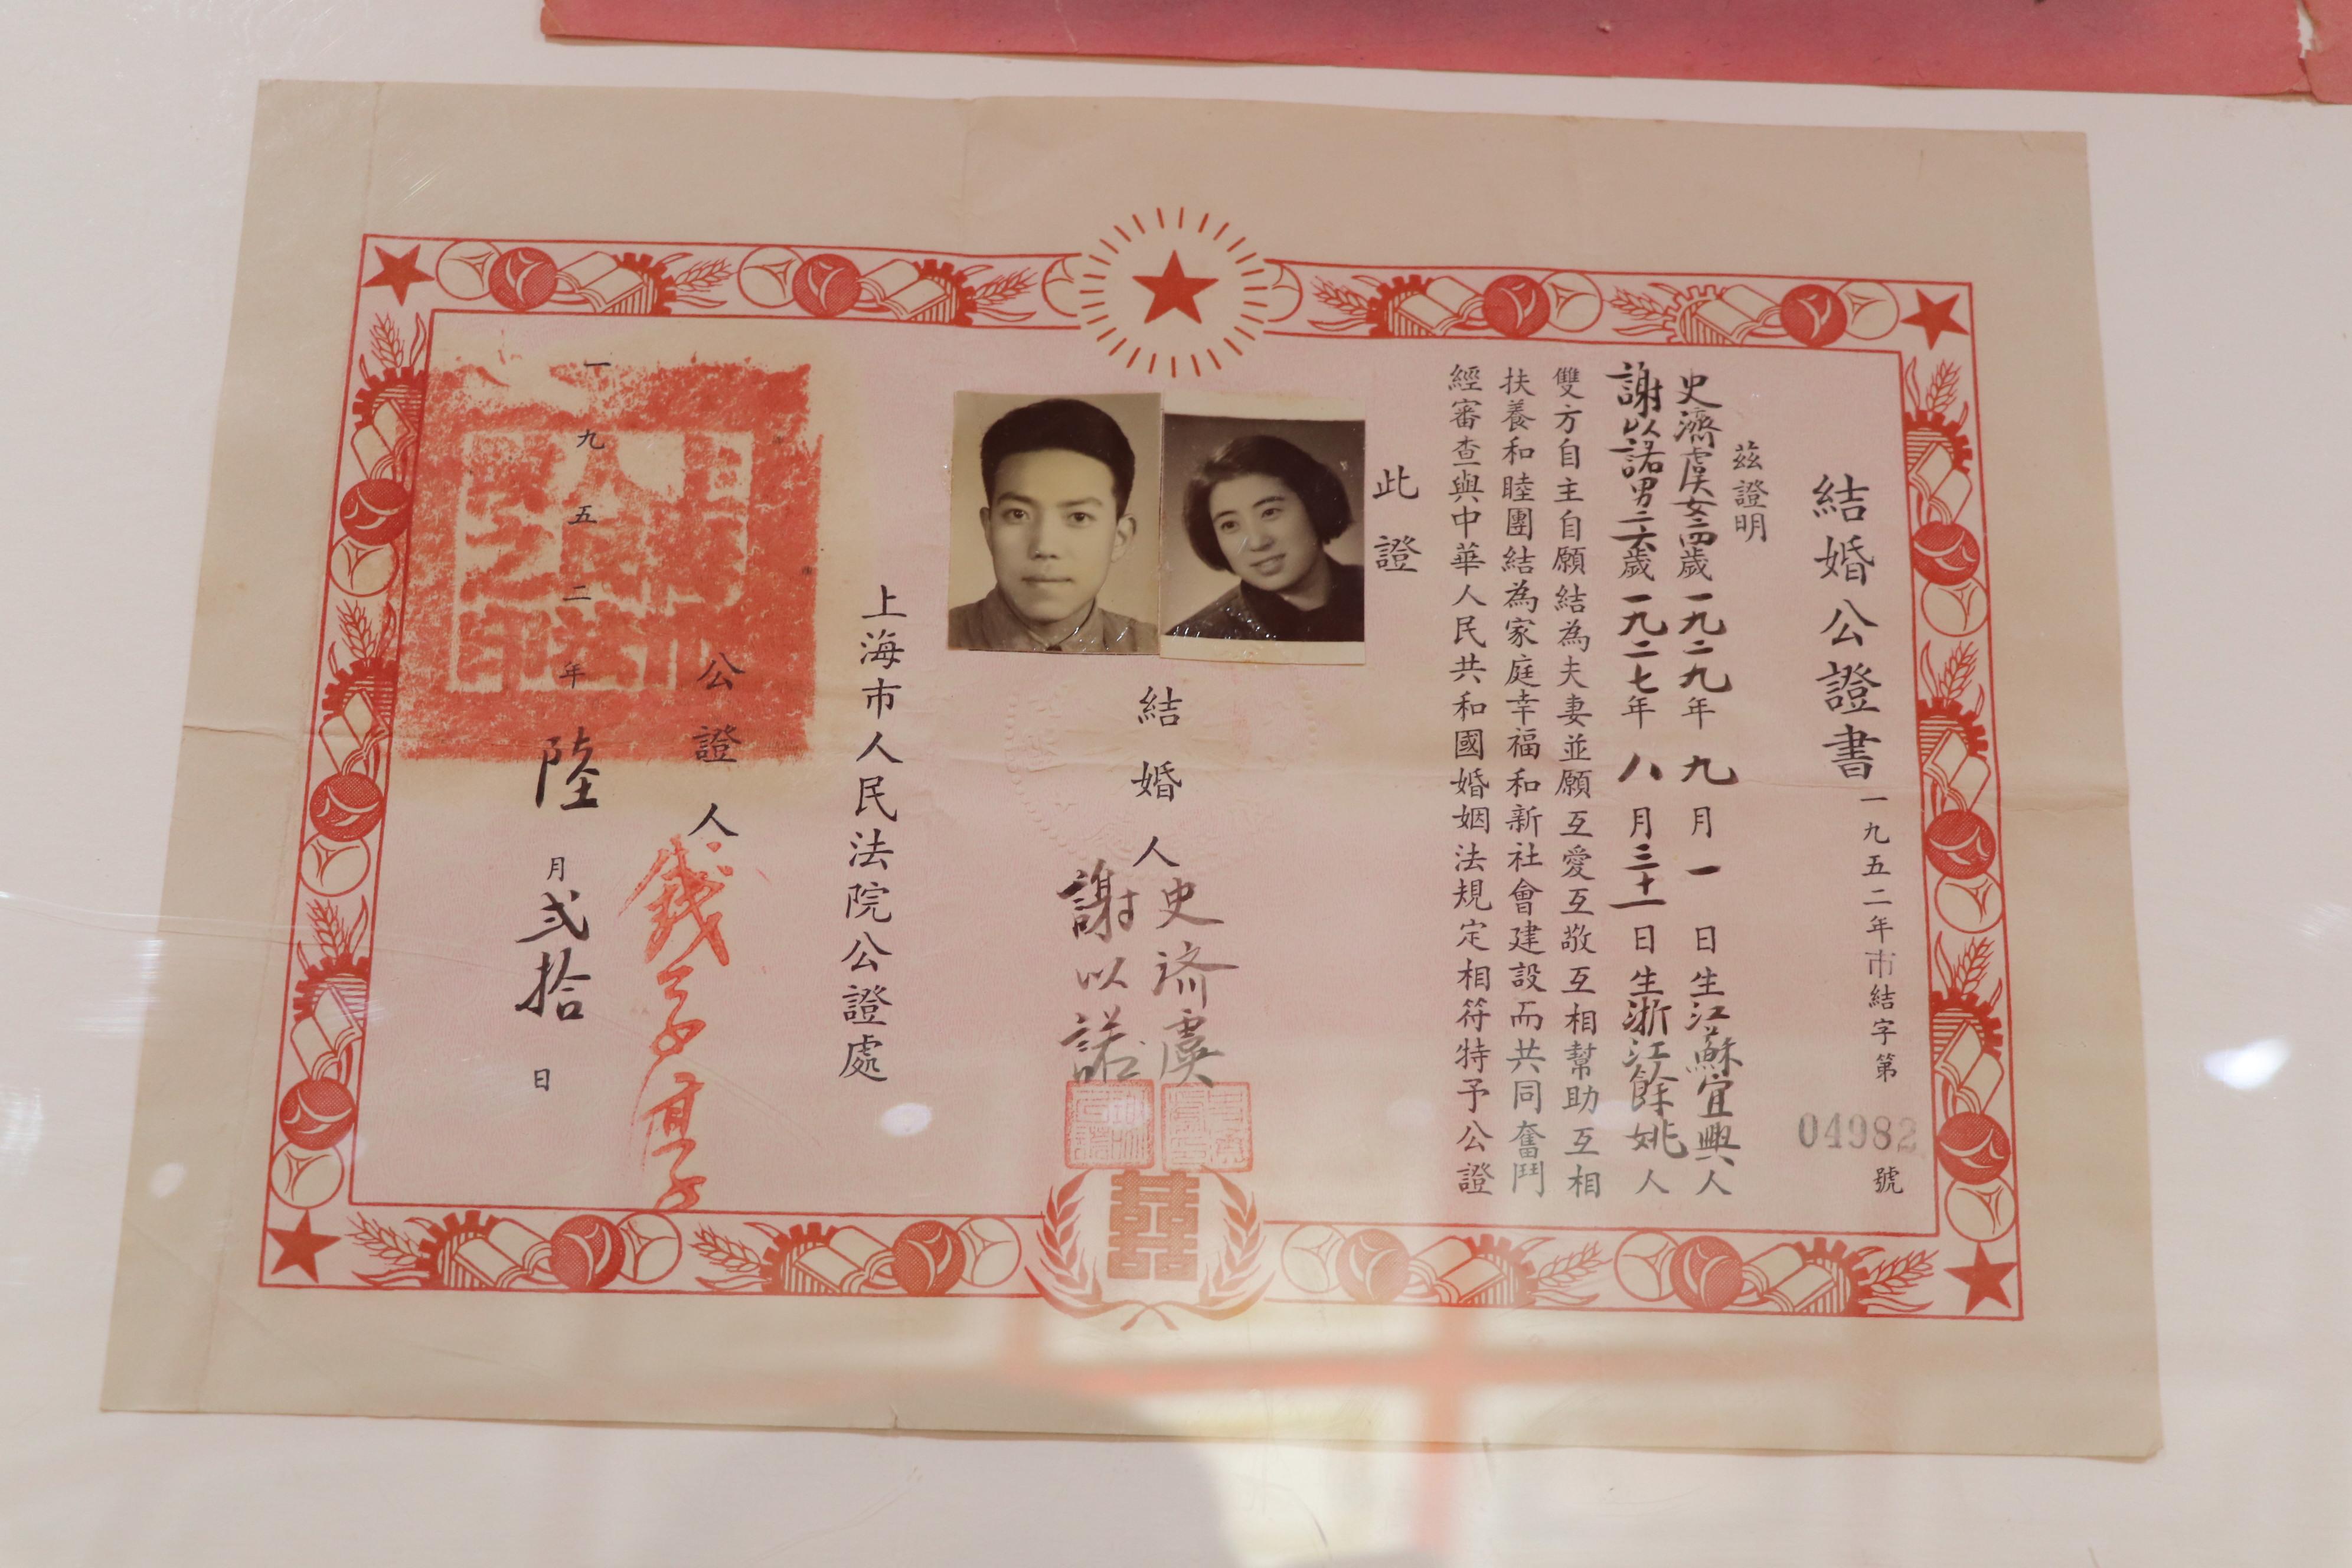 結婚公證書
一九五二年市結字第04982號
茲證明
史濟虞女二四歲一九二九年九月一日生江蘇宜興人
謝以諾男二六歲一九二七年八月三十一日生浙江餘姚人
雙方自主自願結為夫妻並願互愛互敬互相幫助互相
扶養和睦團結為家庭幸福和新社會建設而共同奮鬥
經審查與中華人民共和國婚姻法規定相符特予公證
此證
結婚人
史济虞
謝以諾
囍
上海市人民法院公證處
公證人
一九五二年陸月弍拾日
上海市人民法院之印